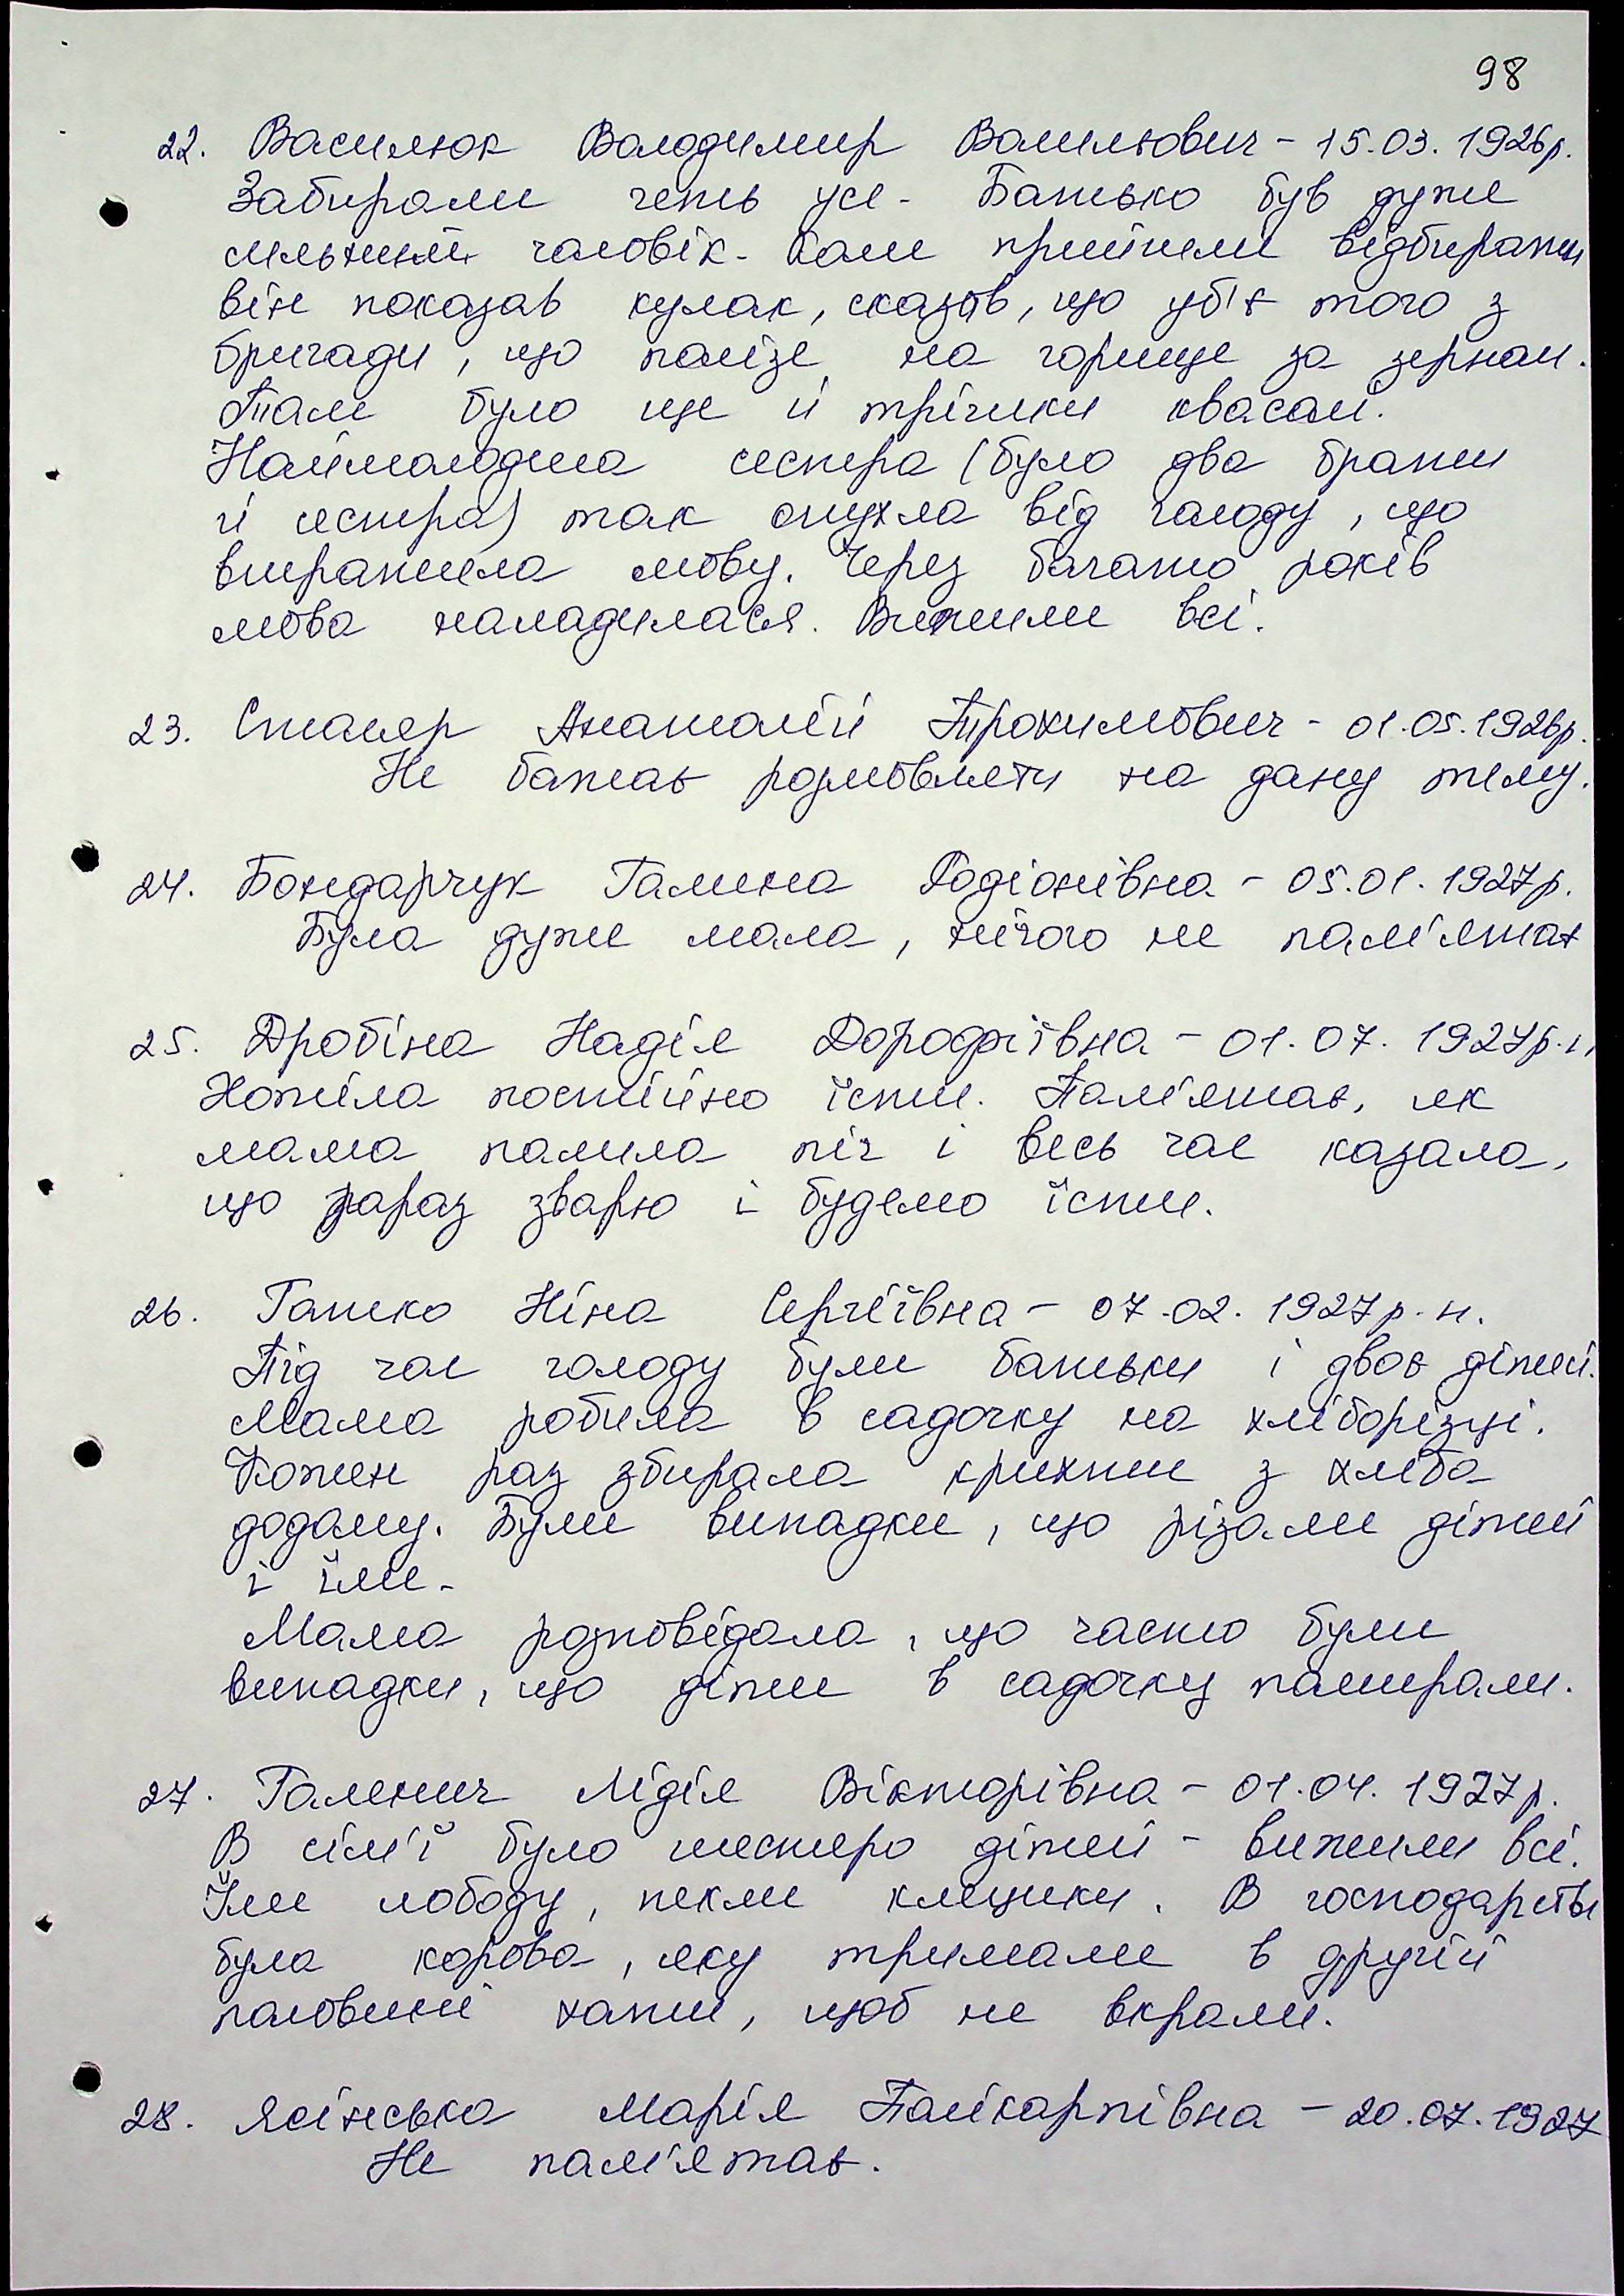 98
22. Василюк Володимир Васильович - 15.03.1926р.
Забирали геть усе. Батько був дуже
сильний чоловік. Коли прийшли відбирати
він показав кулак, сказав, що уб'є того з
бригади, що полізе на горище за зерном.
Там було ще й трішки квасолі.
Наймолодша сестра (було два брати
й сестра) так опухла від голоду, що
втратила мову. Через багато років
мова наладилася. Вижили всі.
23. Столяр Анатолій Трохимович - 01.05.1926р.
Не бажає розмовляти на дану тему.
24. Бондарчук Галина Родіонівна - 05.01.1927р.
Була дуже мала, нічого не пам'ятає
25. Дробіна Надія Дорофіївна - 01.07.1927р.н
Хотіла постійно їсти. Пам'ятає, як
мама палила піч і весь час казала,
що зараз зварю і будемо їсти.
26. Ніна Сергіївна - 07.02.1927р.н.
Під час голоду були батьки і двоє дітей.
Мама робила в садочку на хліборізці.
Кожен раз збирала крихти з хліба
додому. Були випадки, що різали дітей
і їли.
Мама розповідала, що часто були
випадки, що діти в садочку помирали.
27. Галенич Лідія Вікторівна - 01.04.1927р.
В сім'ї було шестеро дітей - вижили всі.
Їли лободу, пекли клещики. В господарстві
була корова, яку тримали в другій
половині хати, щоб не вкрали.
28. Ясінська Марія Полікарпівна - 20.07.1927
Не пам'ятає.